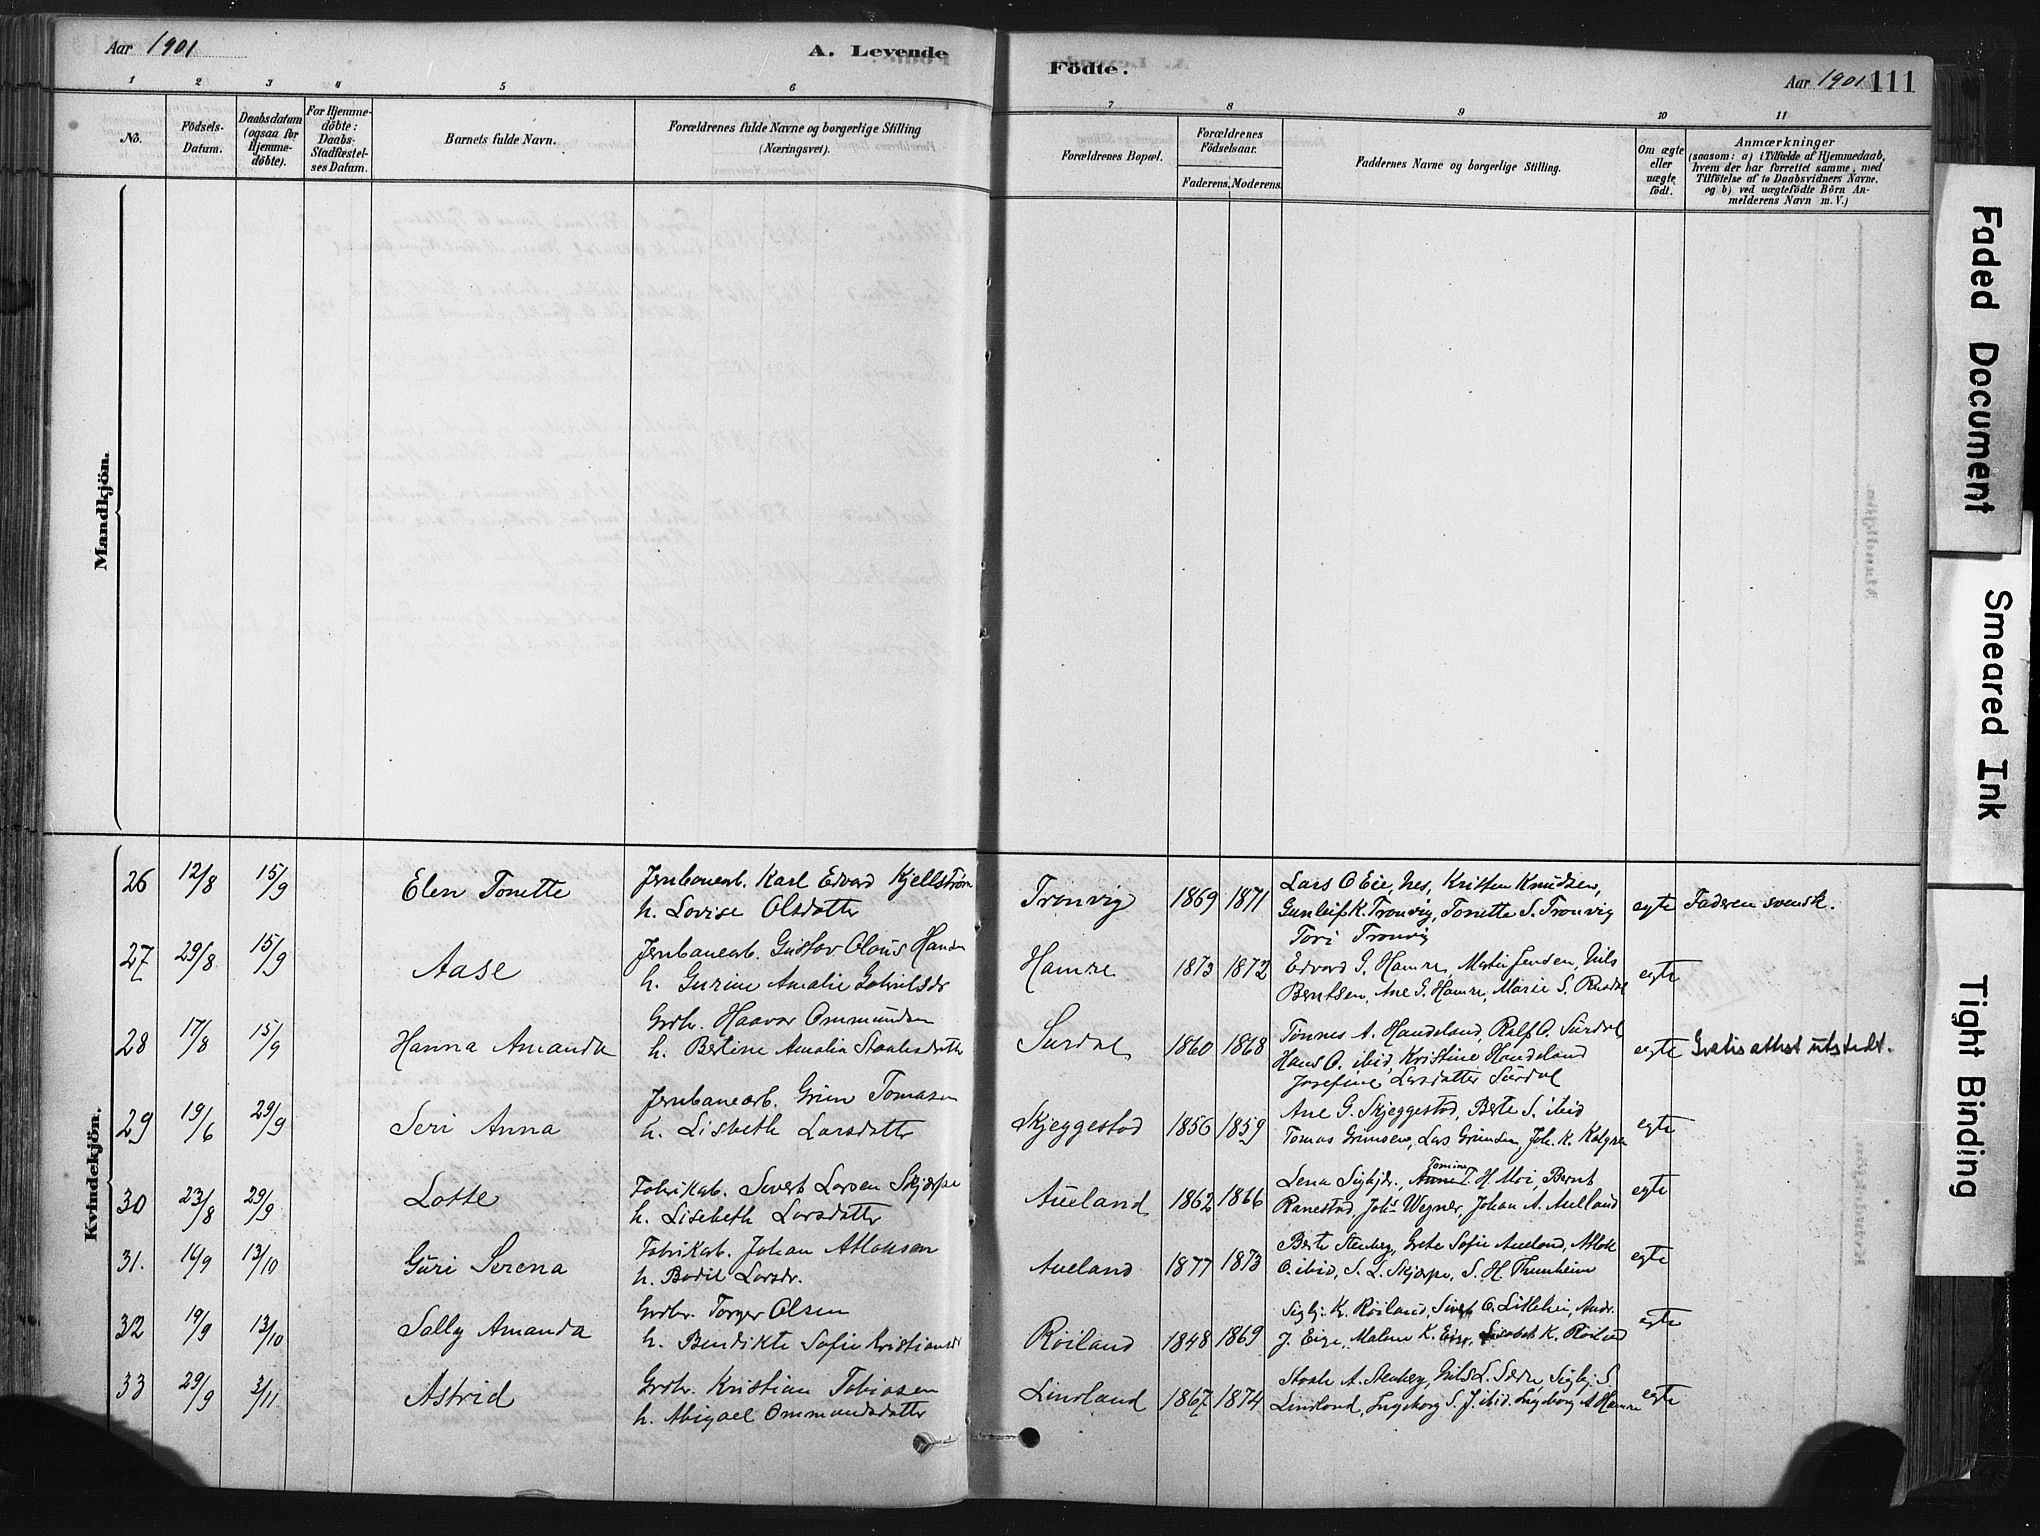 Aar 1901
A. Levende
Födte.
Aar 1901 111
1 2 3 4 5 6 7 8 9 10 11
No.
Födsels-
Datum.
Daabsdatum
(ogsaa for
Hjemme-
döbte).
For Hjemme-
döbte:
Daabs-
Stadfæstel-
ses Datum.
Barnets fulde Navn.
Forældrenes fulde Navne og borgerlige Stilling
(Næringsvei).
Forældrenes Bopæl.
Forældrenes
Födselsaar.
Faderens. Moderens.
Faddernes Navne og borgerlige Stilling.
Om ægte
eller
uægte
födt.
Anmærkninger
(saasom: a) i Tilfælde af Hjemmedaab,
hvem der har forrettet samme, med
Tilföielse af to Daabsvidners Navne,
og b) ved uægtefödte Börn An-
melderens Navn m. V.)
Mandkjön.
Kvindekjön.
26 12/8 15/9 Elen Tonette
Jernbanearb. Karl Edvard Kjellström
h. Lovise Olsdatter
Tronvig 1869 1871
Lars O Eie, Nes, Kristen Knudsen,
Gunleif K. Tronvig, Tonette S. Tronvig
Tori Tronvig
egte Faderen svensk.
27 29/8 15/9 Aase
Jernbanearb. Gustav Olaus Hansen
h. Gurine Amalie Gabrielsdr
Hamre 1873 1872
Edvard G. Hamre, Martin Jensen, Nils
Berntsen, Ane G. Hamre, Marie S. Rusdal
egte
28 17/8 15/9 Hanna Amanda
Grdbr. Haavar Ommundsen
h. Bertine Amalia Staalesdatter
Surdal 1860 1868
Tönnes A. Handeland, Ralf O. Surdal
Hans O. ibid, Kristine Handeland
Josefine Larsdatter Surdal
egte Gratis attest utstedt.
29 19/6 29/9 Seri Anna
Jernbanearb. Grim Tomasen
h. Lisbeth Larsdatter
Skjeggestad 1856 1859
Ane G. Skjeggestad, Berte S. ibid
Tomas Grimsen, Lars Grimsen, Joh. K.
egte
30 23/8 29/9 Lotte
Fabrikarb. Sivert Larsen Skjærpe
h. Lisebeth Larsdatter
Aueland 1862 1866
Lena Sigbjdr., Tomine T. H. Moi, Bernt
Ranestad, Johs Wegner, Johan A. Aueland
egte
31. 16/9 13/10 Guri Serena
Fabrikarb. Johan Atlaksen
h. Bodil Larsdr.
Aueland 1877 1873
Berte Stenberg, Grete Sofie Aueland, Atlak
O. ibid, S. L. Skjærpe, S. H. Trumheim
egte
32 19/9 13/10 Sally Amanda
Grdbr. Torger Olsen
h. Bendikte Sofie Kristiansd
Röiland 1848 1869
Sigbj. K. Röiland, Sivert O. Litlehei, Andr.
J. Eige, Malene K. Eige, K. Röiland
egte
33 29/9 3/11 Astrid
Grdbr. Kristian Tobiasen
h. Abigael Ommundsdatter
Lindland 1867 1874
Staale A. Stenberg, Nils L. Sædre Sigbj. S.
Lindland, Ingeborg S. J. ibid. Ingeborg A Hamre
egte
Faded Document
Smeared Ink
Tight Binding